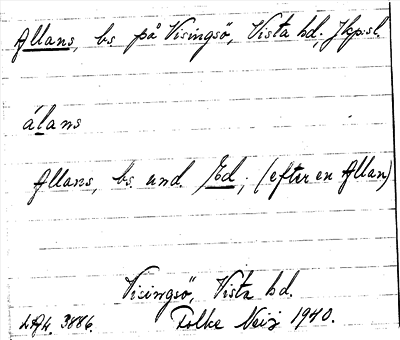 Allans, bs på Visingsö, Vista hd, Jkpsl.
álans
Allans, bs. und. Ed; (efter en Allan)
Visingsö, Vista hd.
3886. Folke Neij 1940.